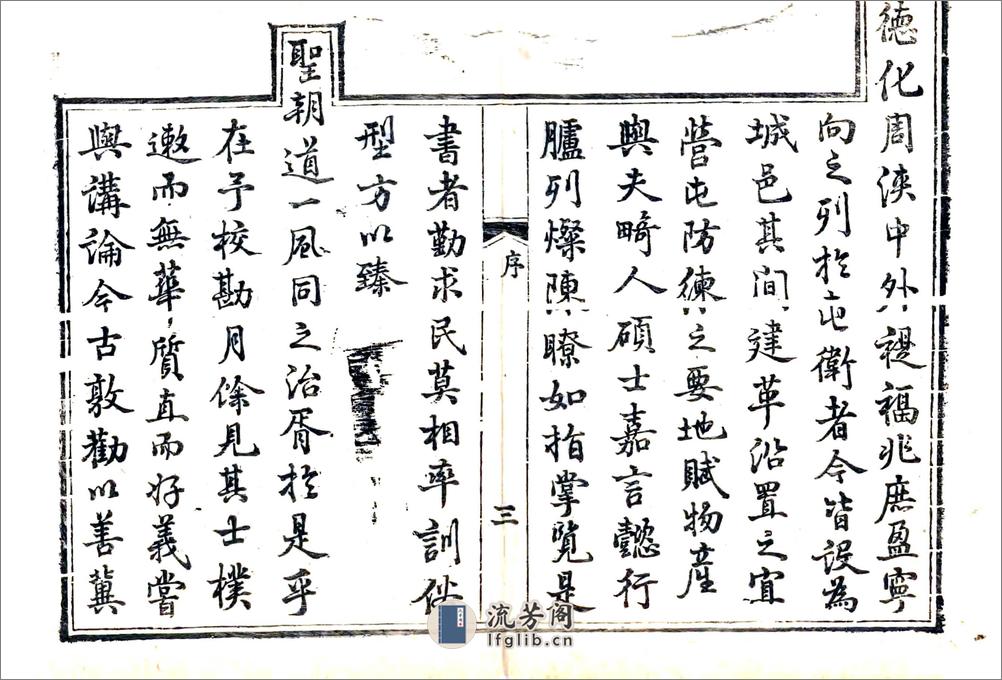 德化周浹中外禔福兆庶盈寧
向之列於屯衛者今皆設為
城邑其間建革沿置之宜
營屯防練之要地賦物產
與夫畸人碩士嘉言懿行
臚列燦陳瞭如指掌覽是
序
三
書者勤求民莫相率訓
型方以臻
聖朝道一風同之治胥於是乎
在予校勘月餘見其士樸
遬而無華質直而好義嘗
與講論今古敦勸以善冀
流芳阁
lfglib.cn